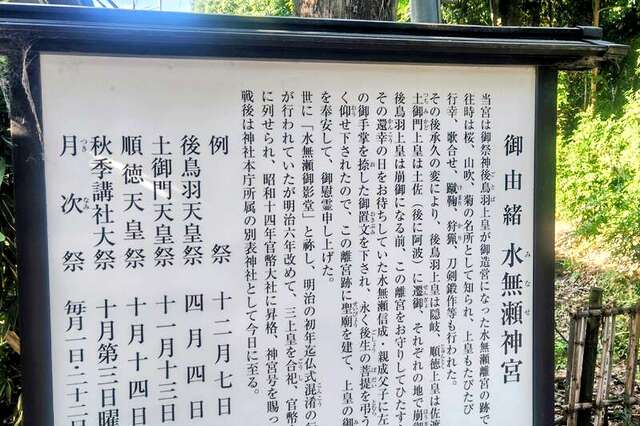 御由緒 水無瀬神宮
当宮は御祭神後鳥羽上皇が御造営になった水無瀬離宮の跡で
往時は桜、山吹、菊の名所として知られ、上皇もたびたび
行幸、歌合せ、蹴鞠、狩猟、刀剣鍛作等も行われた。
その後承久の変により、後鳥羽上皇は隠岐、順徳上皇は佐渡
土御門上皇は土佐（後に阿波）に遷御、それぞれの地で崩御
後鳥羽上皇は崩御になる前、この離宮をお守りしてひたす
その還幸の日をお待ちしていた水無瀬信成・親成父子に左
の御手掌を捺した御置文を下され、永く後生の菩提を弔う
く仰せ下されたので、この離宮跡に聖廟を建て、上皇の御
を奉安して、御慰霊申し上げた。
世に「水無瀬御影堂」と称し、明治の初年迄仏式混淆の
が行われていたが明治六年改めて、三上皇を合祀、官幣
に列せられ、昭和十四年官幣大社に昇格、神宮号を賜っ
戦後は神社本庁所属の別表神社として今日に至る。
例祭 十二月七日
後鳥羽天皇祭 四月四日
土御門天皇祭 十一月十三日
順徳天皇祭 十月十四日
秋季講社大祭 十月第三日曜
月次祭 毎月一日・二十二日